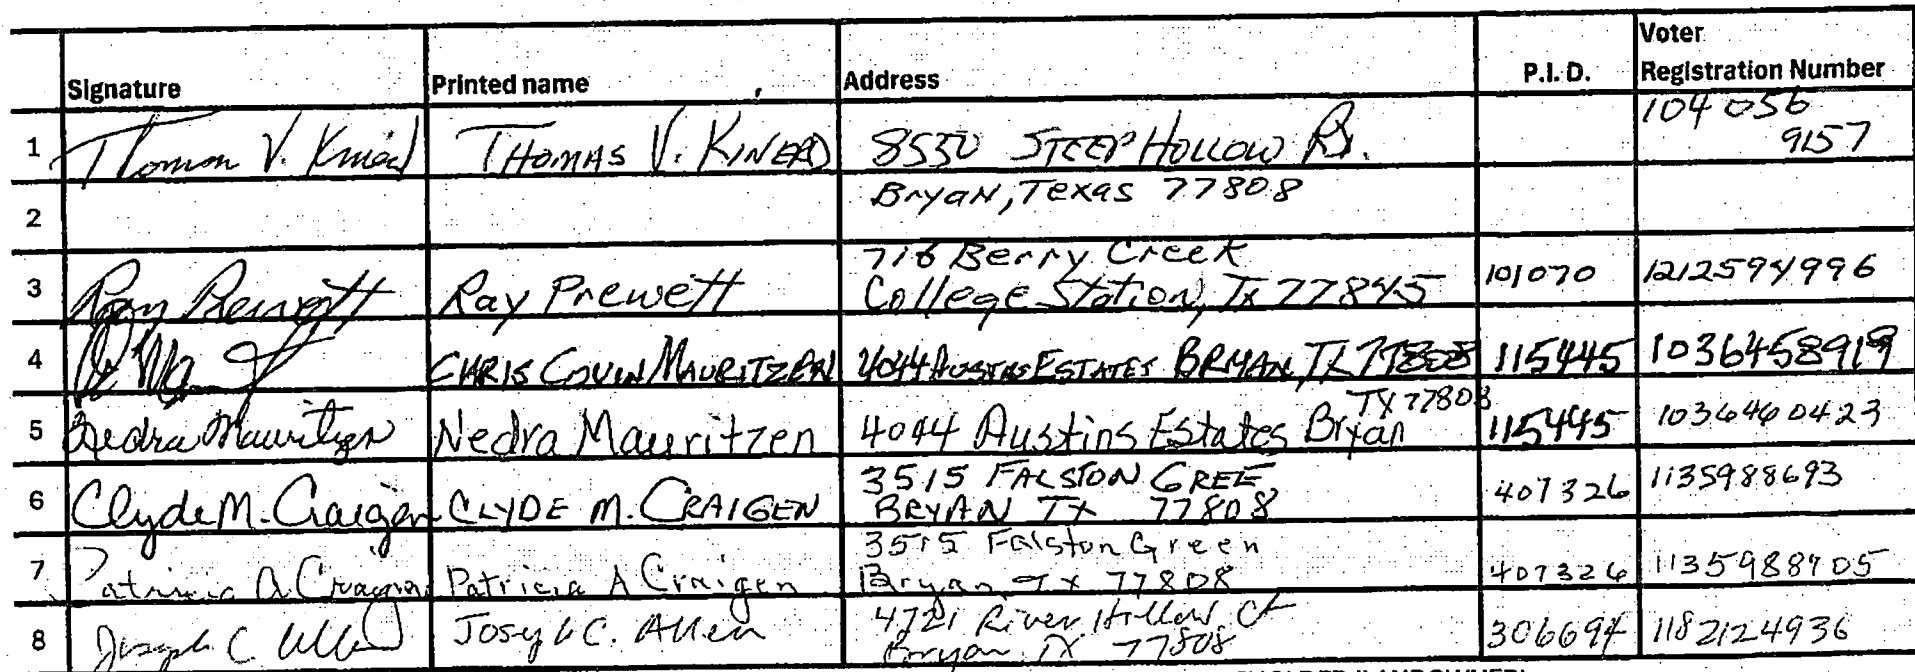 Signature Printed name Address P.I.D. Voter Registration Number
1 Thomas V. Kinead THOMAS V. KINEAD 8550 STEEP HOLLOW Rd. 104 056 9157
2 Bryan, Texas 77808
3 Ray Prewett Ray Prewett 716 Berry Creek
College Station, Tx 77845 101070 1212594996
4 CHRIS MAURITZEN 4044 AUSTINS ESTATES BRYAN, TX 77808 115445 1036458919
5 Nedra Mauritzen Nedra Mauritzen 4044 Austins Estates Bryan TX 77808 115445 1036460423
6 Clyde M. Craigen CLYDE M. CRAIGEN 3515 FALSTON GREE
BRYAN TX 77808 407326 1135988693
7 Patricia A Craigen Patricia A Craigen 3515 Falston Green
Bryan, TX 77808 407326 1135988705
8 Joseph C Allen Joseph C. Allen 4721 River Hollow Ct
Bryan TX 77808 306694 1182124936